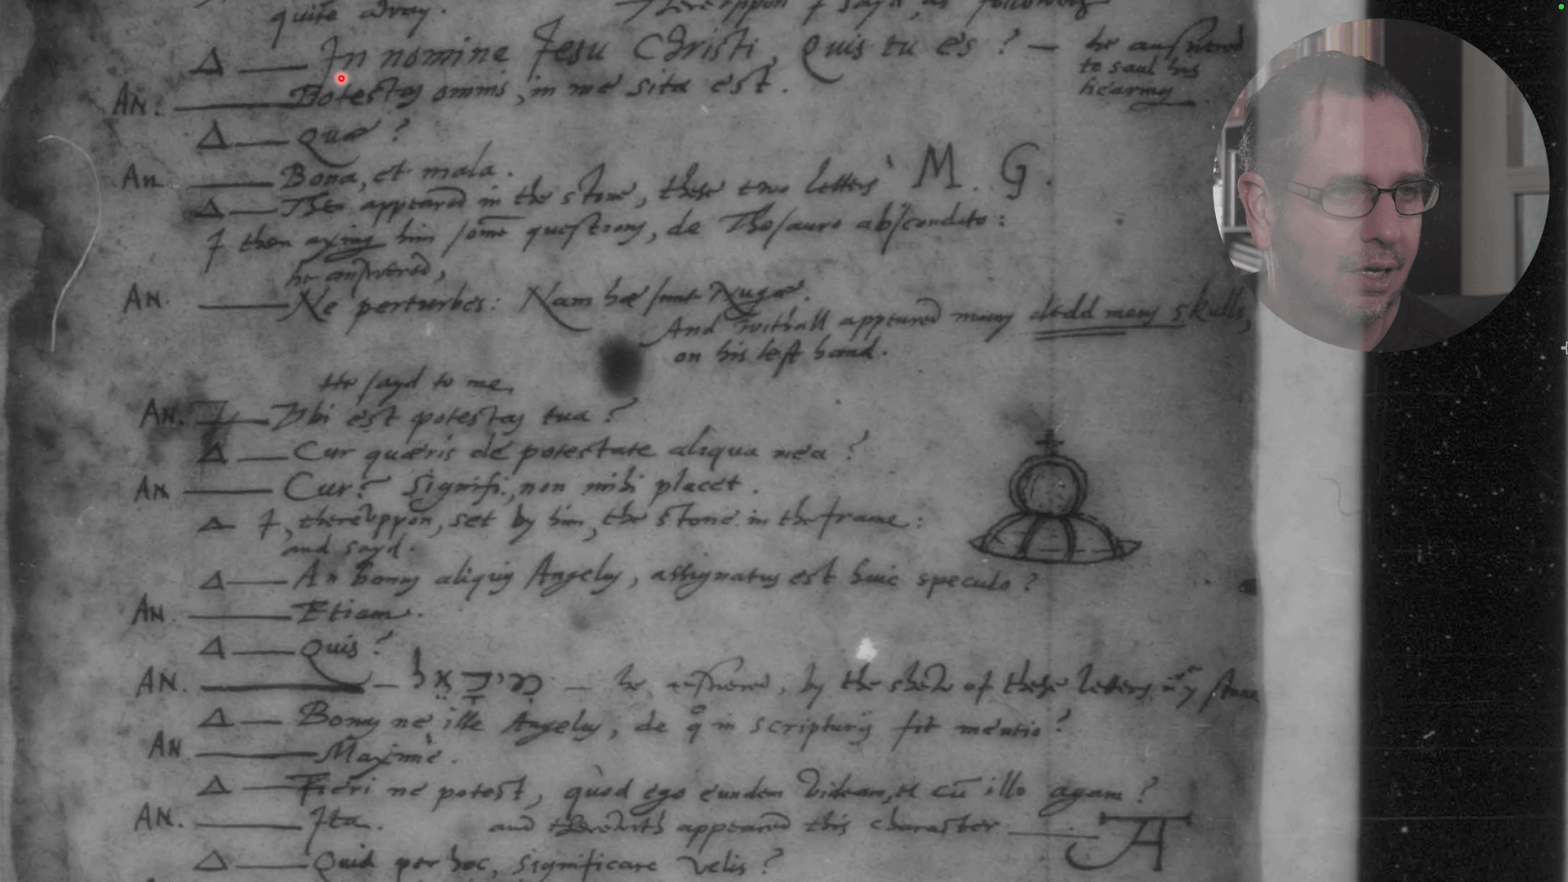 quite away. Thereuppon I sayd, as followeth
Δ — In nomine Jesu Christi, Quis tu es? — he answered
to Saul his
hearing
An. — Potestas omnis, in me sita est.
Δ — Quæ?
An. — Bona, et mala.
Δ — Then appeared in the stone, these two letters M. G.
I then axing him some questions, de Thesauro abscondito:
he answered,
An. — Ne perturbes: Nam hæ sunt Nugæ.
And withall appeared many dedd mens skulls,
on his left hand.
He sayd to me,
An. — Ubi est potestas tua?
Δ — Cur quæris de potestate aliqua mea?
An — Cur? Signifi, non mihi placet.
Δ I, thereuppon, set by him, the stone in the frame:
and sayd.
Δ — An bonus aliquis Angelus, assignatus est huic speculo?
An — Etiam.
Δ — Quis?
An. — מיכאל — he answered, by the shew of these letters in the stone
Δ — Bonus ne ille Angelus, de quo in scripturis fit mentio?
An — Maximè.
Δ — Fieri ne potest, quòd ego eundem videam, et cū illo agam?
An. — Ita. and therewith appeared this character — A
Δ — Quid per hoc, significare velis?